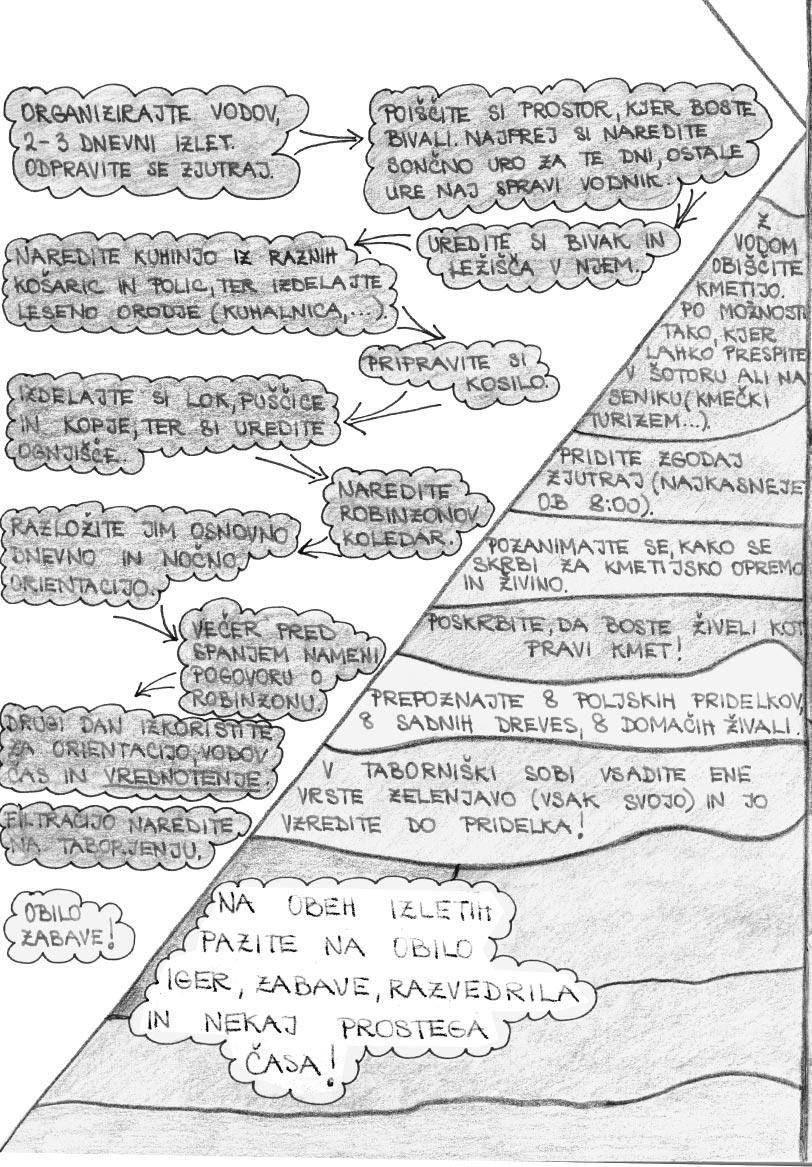 ORGANIZIRAJTE VODOV,
2-3 DNEVNI IZLET.
ODPRAVITE SE ZJUTRAJ.
POIŠČITE SI PROSTOR, KJER BOSTE
BIVALI. NAJPREJ SI NAREDITE
SONČNO URO ZA TE DNI, OSTALE
URE NAJ SPRAVI VODNIK.
UREDITE SI BIVAK IN
LEŽIŠČA V NJEM.
NAREDITE KUHINJO IZ RAZNIH
KOŠARIC IN POLIC, TER IZDELAJTE
LESENO ORODJE (KUHALNICA,...).
PRIPRAVITE SI
KOSILO.
IZDELAJTE SI LOK, PUŠČICE
IN KOPJE, TER SI UREDITE
OGNJIŠČE.
NAREDITE
ROBINZONOV
KOLEDAR.
RAZLOŽITE JIM OSNOVNO
DNEVNO IN NOČNO
ORIENTACIJO.
VEČER PRED
SPANJEM NAMENI
POGOVORU O
ROBINZONU.
DRUGI DAN IZKORISTITE
ZA ORIENTACIJO, VODOV
ČAS IN VREDNOTENJE.
FILTRACIJO NAREDITE
NA TABORJENJU.
OBILO
ZABAVE!
Z
VODOM
OBIŠČITE
KMETIJO.
PO MOŽNOSTI
TAKO, KJER
LAHKO PRESPITE
V ŠOTORU ALI NA
SENIKU (KMEČKI
TURIZEM...).
PRIDITE ZGODAJ
ZJUTRAJ (NAJKASNEJE
OB 8:00).
POZANIMAJTE SE, KAKO SE
SKRBI ZA KMETIJSKO OPREMO
IN ŽIVINO.
POSKRBITE, DA BOSTE ŽIVELI KOT
PRAVI KMET!
PREPOZNAJTE 8 POLJSKIH PRIDELKOV,
8 SADNIH DREVES, 8 DOMAČIH ŽIVALI.
V TABORNIŠKI SOBI VSADITE ENE
VRSTE ZELENJAVO (VSAK SVOJO) IN JO
VZREDITE DO PRIDELKA!
NA OBEH IZLETIH
PAZITE NA OBILO
IGER, ZABAVE, RAZVEDRILA
IN NEKAJ PROSTEGA
ČASA!